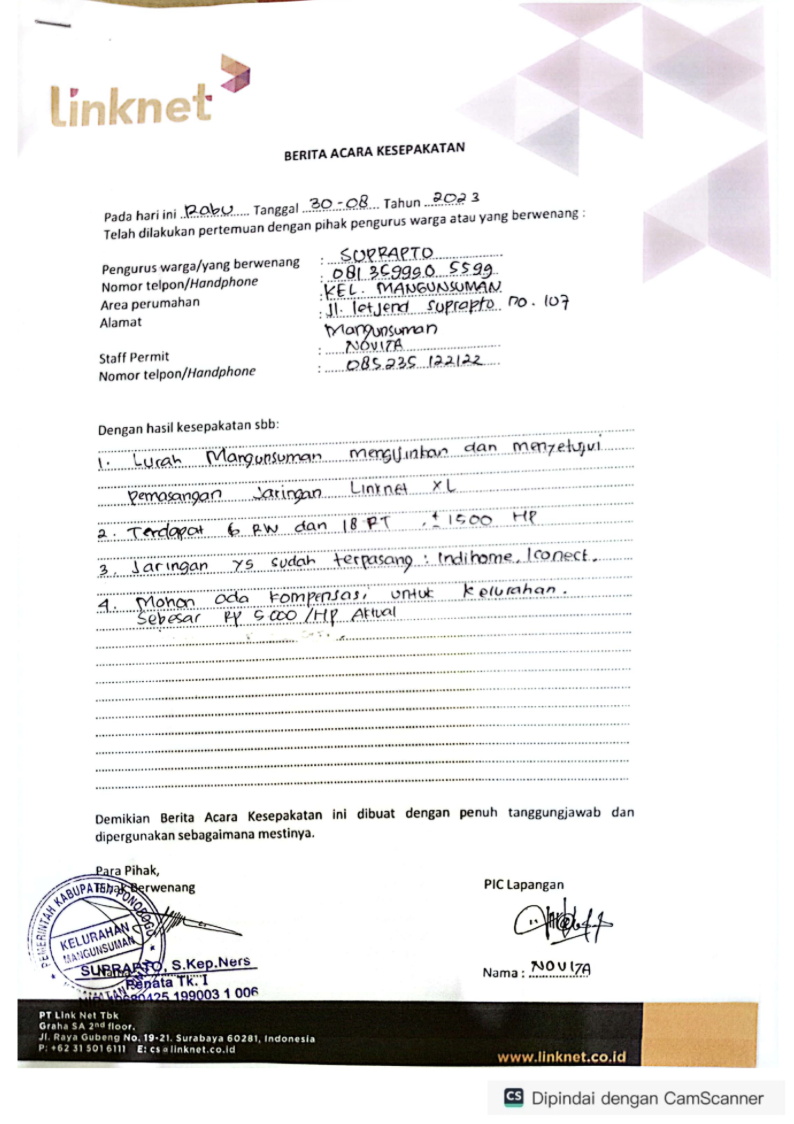 linknet
BERITA ACARA KESEPAKATAN
Pada hari ini Rabu Tanggal 30-08 Tahun 2023
Telah dilakukan pertemuan dengan pihak pengurus warga atau yang berwenang :
Pengurus warga/yang berwenang : SUPRAPTO
Nomor telpon/Handphone : 081 359990 5599
Area perumahan : KEL. MANGUNSUMAN
Alamat : Jl. letjend suprapto no. 107
Mangunsuman
Staff Permit : NOVITA
Nomor telpon/Handphone : 085 235 122122
Dengan hasil kesepakatan sbb:
1. Lurah Mangunsuman mengijinkan dan menyetujui
pemasangan Jaringan Linknet XL
2. Terdapat 6 RW dan 18 RT . ± 1500 HP
3. Jaringan yg sudah terpasang : Indihome, Iconect.
4. Mohon ada kompensasi untuk kelurahan.
Sebesar Rp 5000 /HP Aktual
Demikian Berita Acara Kesepakatan ini dibuat dengan penuh tanggungjawab dan
dipergunakan sebagaimana mestinya.
Para Pihak,
Pihak Berwenang
PIC Lapangan
PEMERINTAH KABUPATEN PONOROGO
KELURAHAN
MANGUNSUMAN
SUPRAPTO, S.Kep.Ners
Penata Tk. I
199003 1 006
Nama : NOVITA
PT Link Net Tbk
Graha SA 2nd floor.
Jl. Raya Gubeng No. 19-21. Surabaya 60281, Indonesia
P: +62 31 501 6111 E: cs@linknet.co.id
www.linknet.co.id
CS Dipindai dengan CamScanner